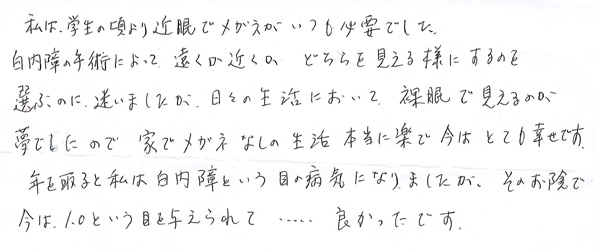 私は、学生の頃より近眼でメガネがいつも必要でした。
白内障の手術によって、遠くか近くか、どちらを見える様にするのを
選ぶのに、迷いましたが、日々の生活において、裸眼で見えるのが
夢でしたので 家でメガネなしの生活 本当に楽で今はとても幸せです。
年を取ると私は白内障という目の病気になりましたが、そのお陰で
今は、1.0という目を与えられて ‥‥‥ 良かったです。